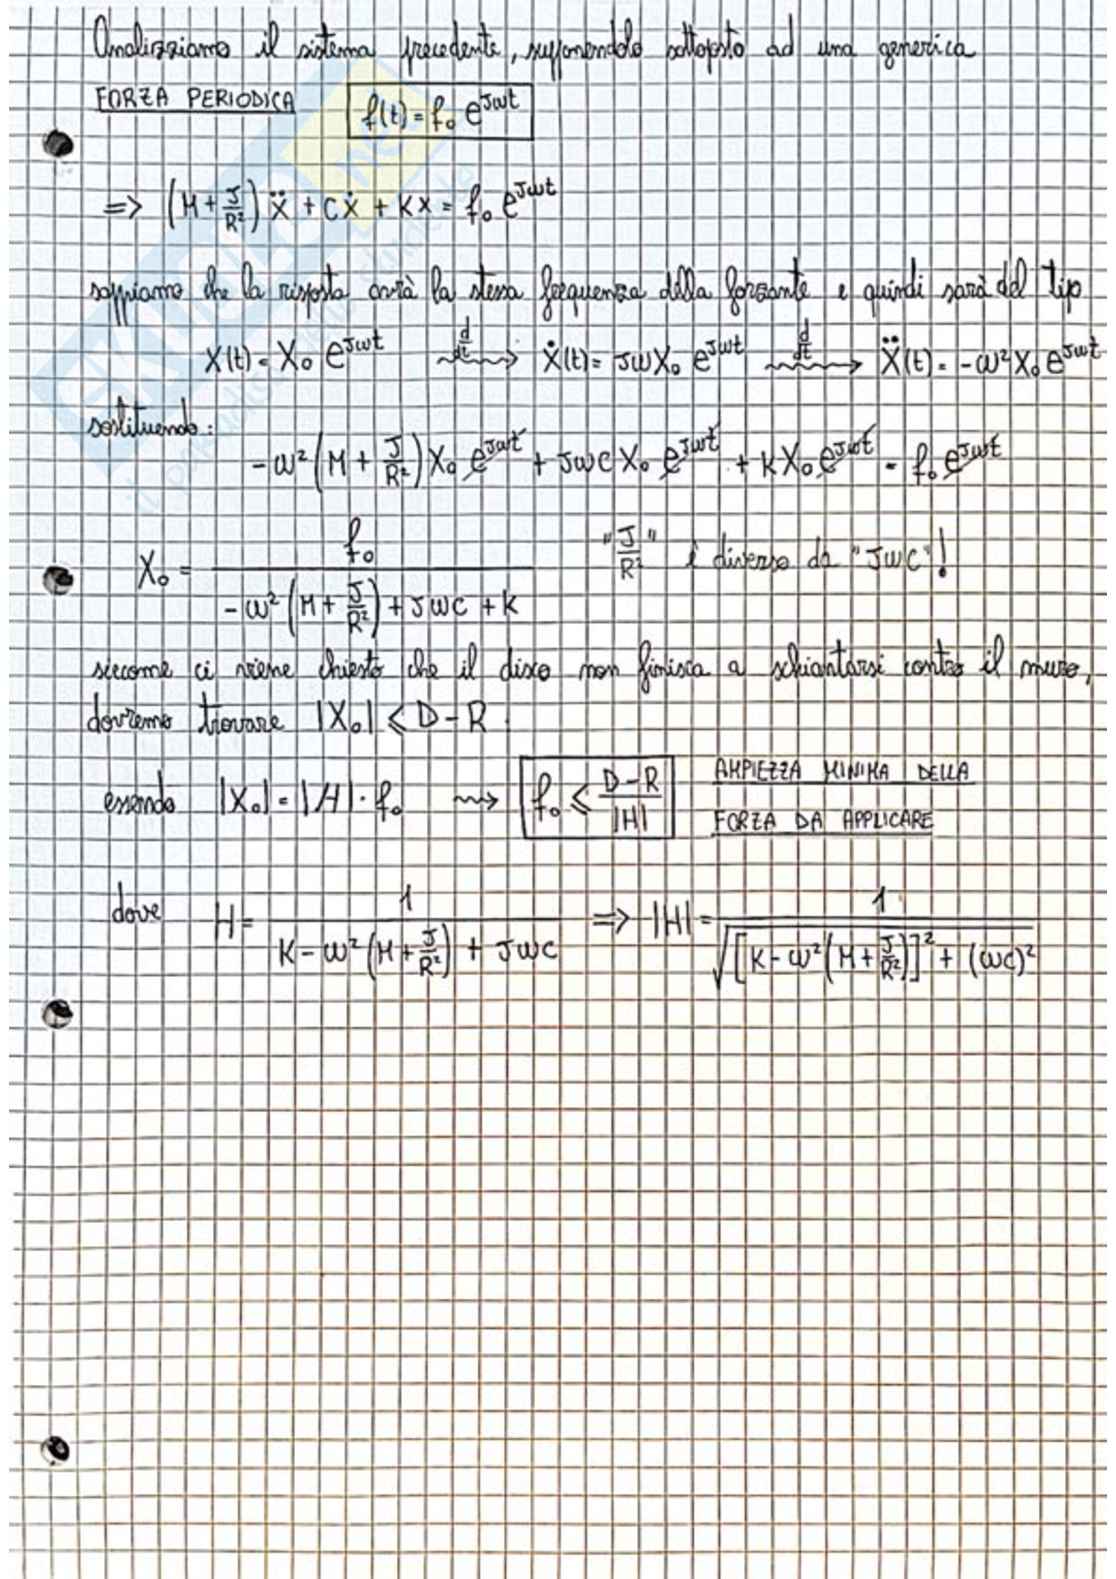 Analizziamo il sistema precedente, supponendolo sottoposto ad una generica
FORZA PERIODICA f(t) = f₀ e^{Jωt}
=> (M + J/R²) ẍ + cẋ + Kx = f₀ e^{Jωt}
sappiamo che la risposta avrà la stessa frequenza della forzante e quindi sarà del tipo
X(t) = X₀ e^{Jωt} d/dt ⟿ Ẋ(t) = JωX₀ e^{Jωt} d/dt ⟿ Ẍ(t) = -ω²X₀ e^{Jωt}
sostituendo:
-ω² (M + J/R²) X₀ e^{Jωt} + JωC X₀ e^{Jωt} + KX₀ e^{Jωt} = f₀ e^{Jωt}
X₀ = f₀ / (-ω² (M + J/R²) + JωC + K) "J/R²" è diverso da "JωC"!
siccome ci viene chiesto che il disco non finisca a schiantarsi contro il muro,
dovremo trovare |X₀| ⩽ D-R.
essendo |X₀| = |H| · f₀ ⟿ f₀ ⩽ (D-R)/|H| AMPIEZZA MINIMA DELLA
FORZA DA APPLICARE
dove H = 1 / (K - ω² (M + J/R²) + JωC) => |H| = 1 / √([K - ω² (M + J/R²)]² + (ωC)²)